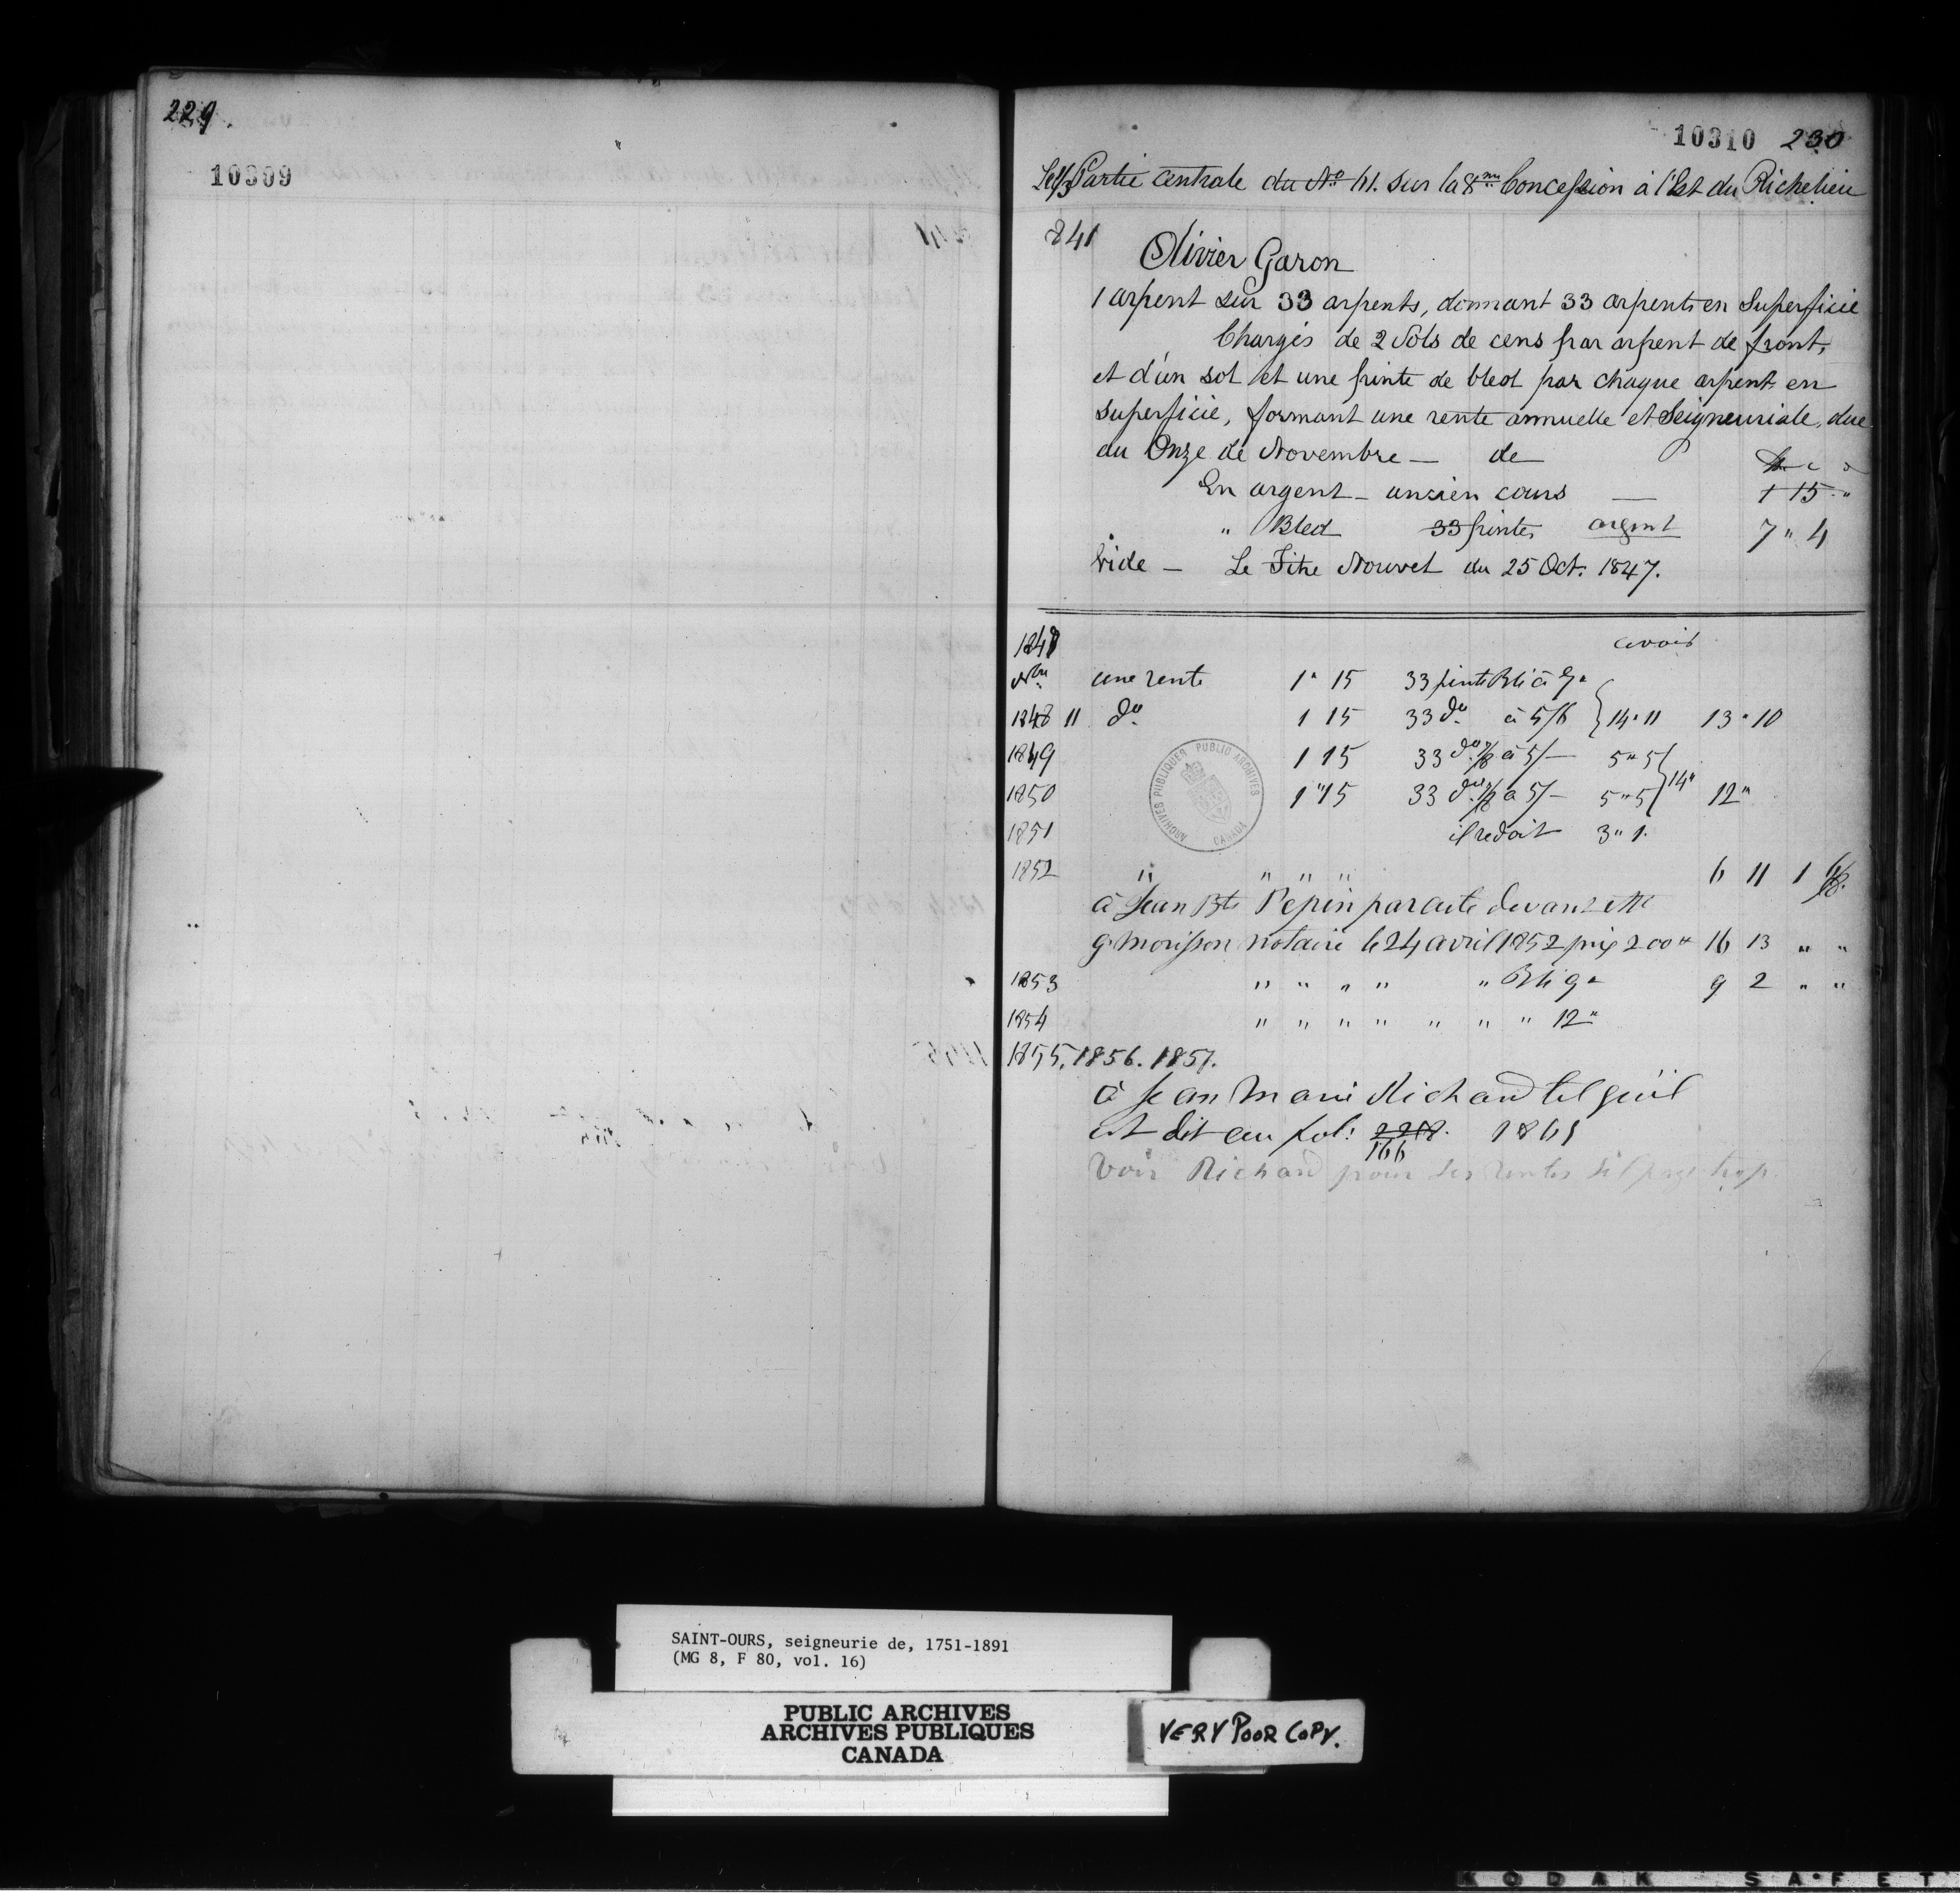 229
10309
10310 230
Partie centrale du No 41. sur la 8me Concession à l'Est du Richelieu
841
Olivier Garon
1 arpent sur 33 arpents, donnant 33 arpents en Superficie
Chargés de 2 Sols de cens par arpent de front,
et d'un sol et une pinte de bled par chaque arpent en
superficie, formant une rente annuelle et Seigneuriale, due
au Onze de Novembre — de
En argent - ancien cours — 1 15 "
" Bled 33 pintes argent 7 " 4
Vide — Le Titre Nouvel du 25 Oct. 1847.
avoir
une rente 1 " 15 33 pinte Blé à
1848 11 do 1 15 33 do à 5/6 14 " 11 13 " 10
1849 1 15 33 do à 5/- 5 " 5
1850 1 " 15 33 do à 5/- 5 " 5 14 " 12 "
1851 il redoit 3 " 1.
1852 " " " " 6 11 1
à Jean Bte Pepin par acte devant
g morisson notaire le 24 avril 1852 prix 200 " 16 13 " "
1853 " " " " " Blé 9 " 9 2 " "
1854 " " " " " " " 12 "
1855. 1856. 1857.
à Jean Marie Richard tel qu'il
est dit au fol: 166 1861
Voir Richard pour ses rentes s'il paye trop
ARCHIVES PUBLIQUES PUBLIC ARCHIVES CANADA
SAINT-OURS, seigneurie de, 1751-1891
(MG 8, F 80, vol. 16)
PUBLIC ARCHIVES
ARCHIVES PUBLIQUES
CANADA
VERY POOR COPY.
KODAK SAFET